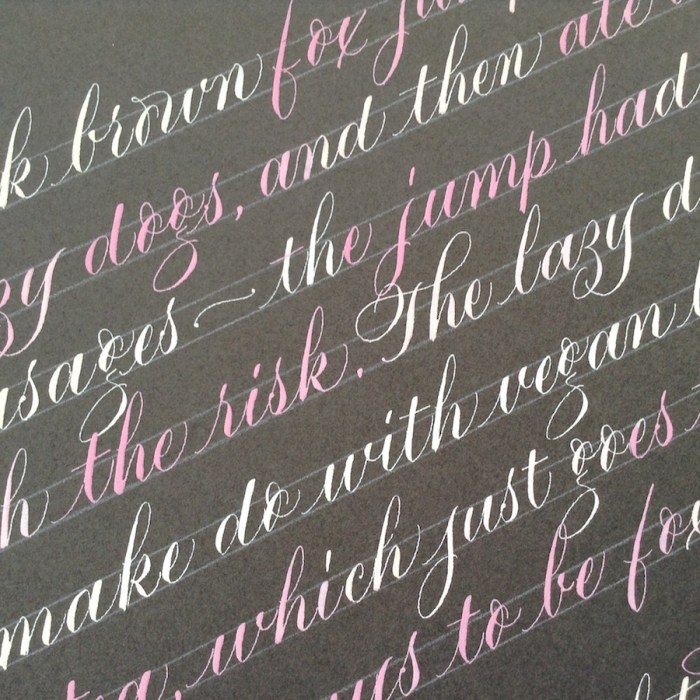 k brown fox jum
zy dogs, and then ate
usages ~ the jump had
h the risk. The lazy d
make do with vegan
which just goes
to be fox